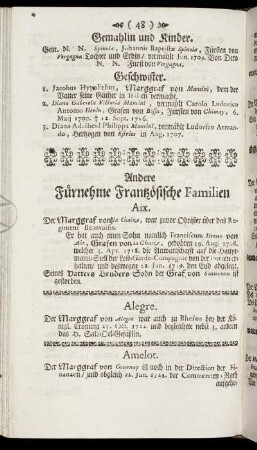 ( 48 )
Gemahlin und Kinder.
Gem. N. N. Spinola, Johannis Baptistæ Spinola, Fürsten von
Vergagne Tochter und Erbin / vermählt Jun. 1709. Von Dero
N. N. Fürst von Vergagne.
Geschwister.
1. Jacobus Hypolithus, Marggraf von Mancini, dem der
Vatter seine Güther in Italien vermacht.
2. Diana Gabriela Victoria Mancini, vermählt Carolo Ludovico
Antonio Grafen von Fürsten von Chimay, 6.
Maji 1700. † 12. Sept. 1716.
3. Diana Adelheid Philippa Mancini, vermählt Ludovico Arman-
do, Hertzogen von 12 Aug. 1707.
Andere
Fürnehme Frantzösische Familien
Aix.
Der Marggraf von la Chaize, war zuvor Obrister über des Re-
giments Beauvaisin.
Er hat auch einen Sohn namlich Franciscum von
Aix, Grafen von la Chaize, gebohren 19. Aug. 1718.
welcher 5. Apr. 1718. die Anwartschafft auf die Haupt-
mann-Stell der Leib-Garde-Compagnie von der Porten er-
halten / und deswegen 18. Jan. den Eyd abgelegt.
Seines Vatters Bruders Sohn der Graf von Souternon ist
gestorben.
Alegre.
Der Marggraf von Alegre war auch zu Rheims bey der Kö-
nigl. Crönung 25. Oct. 1722 und begleithete nebst 3. andern
das H. Salb-Oel-Gefäßlin.
Amelot.
Der Marggraf von Gournay ist noch in der Direction der Fi-
nantzen / und obgleich 22. Jun. der Commercien-Rath
aufgeho-